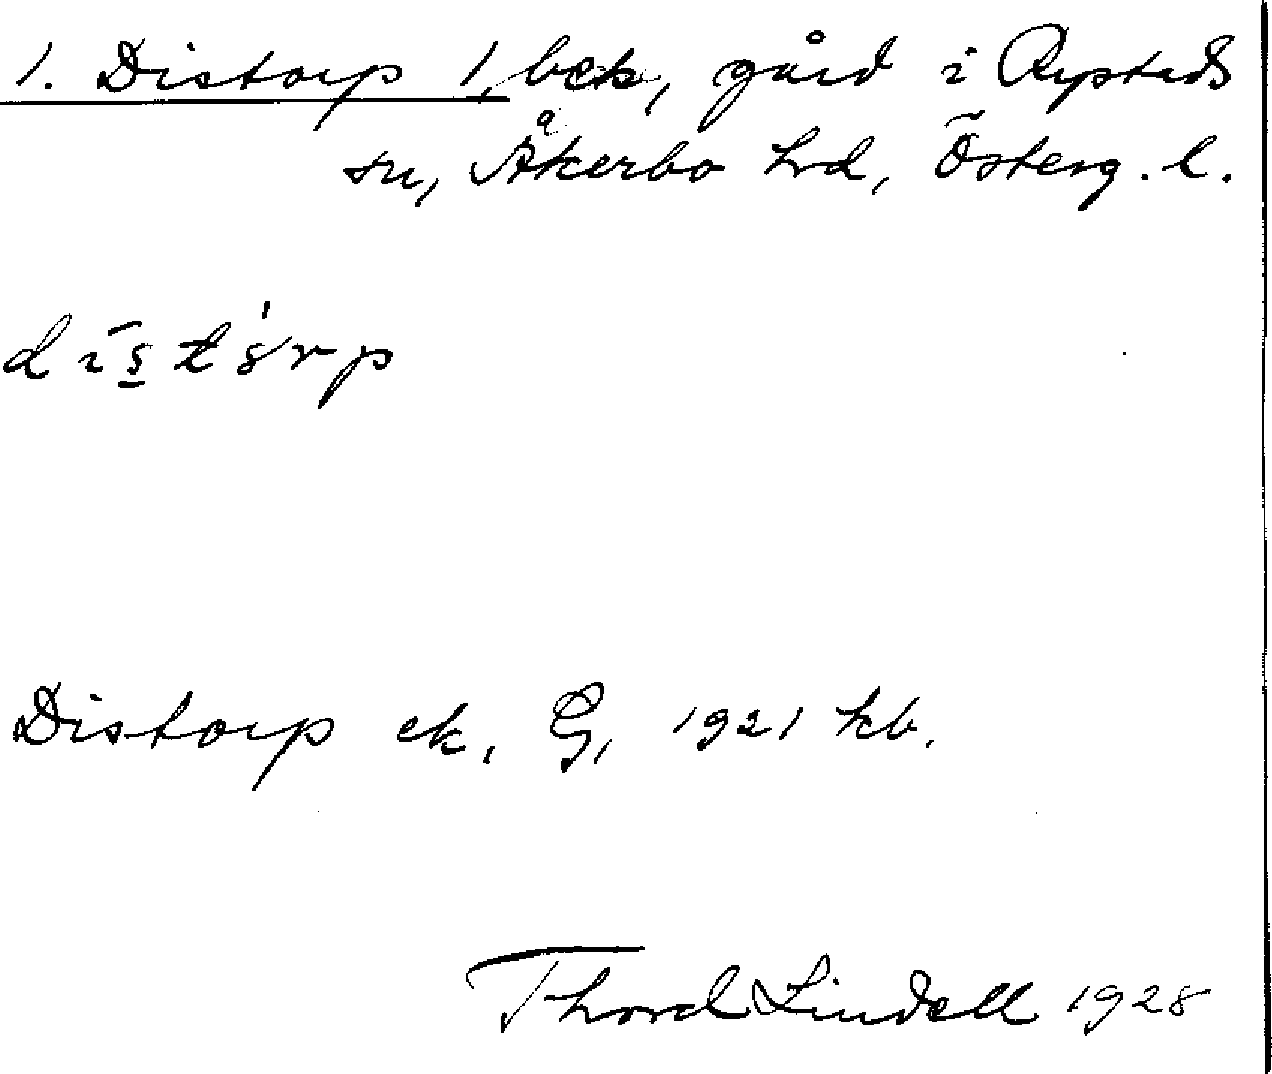 1. Distorp 1, bck, gård i Rystads
sn, Åkerbo hd, Österg. l.
dīs̱tórp
Distorp ek, G, 1921 kb.
Thord Lindell 1928